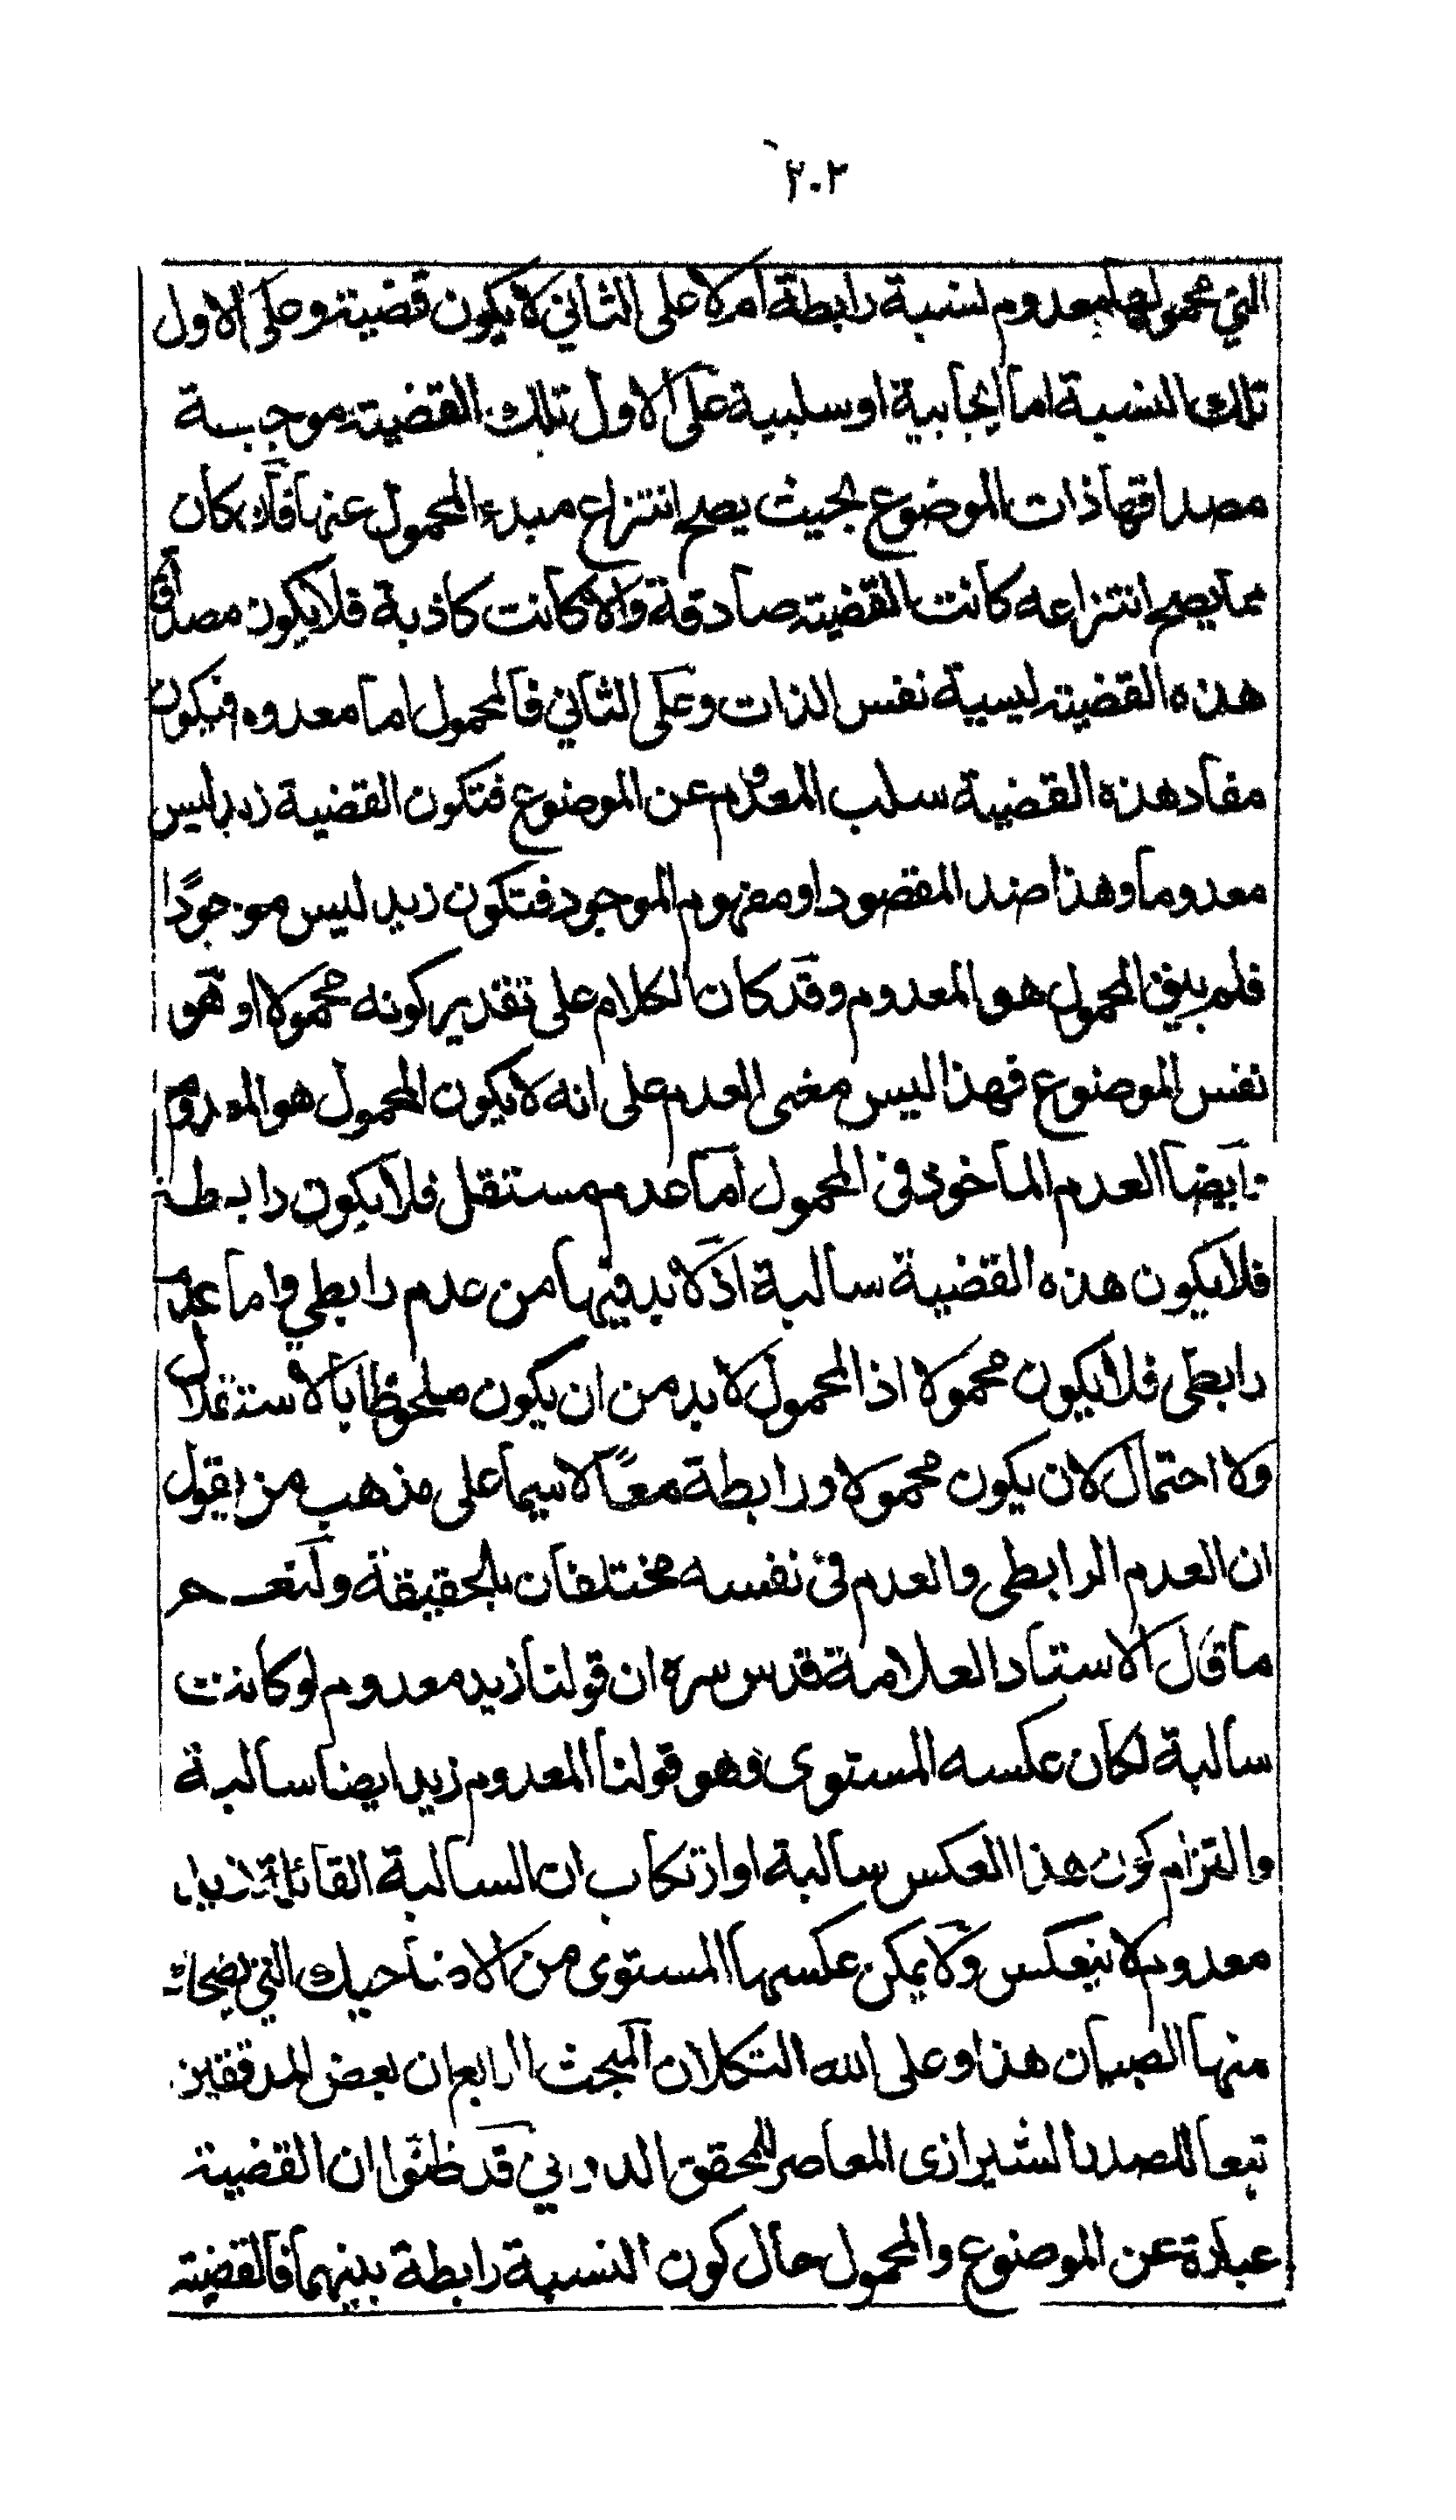 ٢٠٢
التي محمولها معدوم نسبة رابطة ام لا على الثاني لا يكون قضية وعلى الاول
تلك النسبة اما ايجابية او سلبية على الاول تلك القضية موجبة
مصداقها ذات الموضوع بحيث يصح انتزاع مبدء المحمول عنها فان كان
مما يصح انتزاعه كانت القضية صادقة والا كانت كاذبة فلا يكون مصداق
هذه القضية ليسية نفس الذات وعلى الثاني فالمحمول اما معدوم فيكون
مفاد هذه القضية سلب المعدوم عن الموضوع فتكون القضية زيد ليس
معدوما وهذا ضد المقصود او مفهوم الموجود فتكون زيد ليس موجودًا
فلم يبق المحمول هو المعدوم وقد كان الكلام على تقدير كونه محمولا او هو
نفس الموضوع فهذا ليس معنى العدم على انه لا يكون المحمول هو المعدوم
وايضا العدم الماخوذ في المحمول اما عدم مستقل فلا يكون رابطة
فلا يكون هذه القضية سالبة اذ لا بد فيها من عدم رابطي واما عدم
رابطى فلا يكون محمولا اذا المحمول لا بد من ان يكون ملحوظا بالاستقلال
ولا احتمال لان يكون محمولا ورابطة معًا لا سيما على مذهب من يقول
ان العدم الرابطى والعدم في نفسه مختلفان بالحقيقة ولنعم
ما قال الاستاد العلامة قدس سره ان قولنا زيد معدوم لو كانت
سالبة لكان عكسه المستوى وهو قولنا المعدوم زيد ايضا سالبة
والتزام كون هذا العكس سالبة او ارتكاب ان السالبة القائلة زيد
معدوم لا تنعكس ولا يمكن عكسها المستوى من الاضاحيك التي يضحك
منها الصبيان هذا وعلى الله التكلان المبحث الرابع ان بعض المدققين
تبعا للصدر الشيرازى المعاصر للمحقق الدواني قد ظنوا ان القضية
عبارة عن الموضوع والمحمول حال كون النسبة رابطة بينهما فالقضية